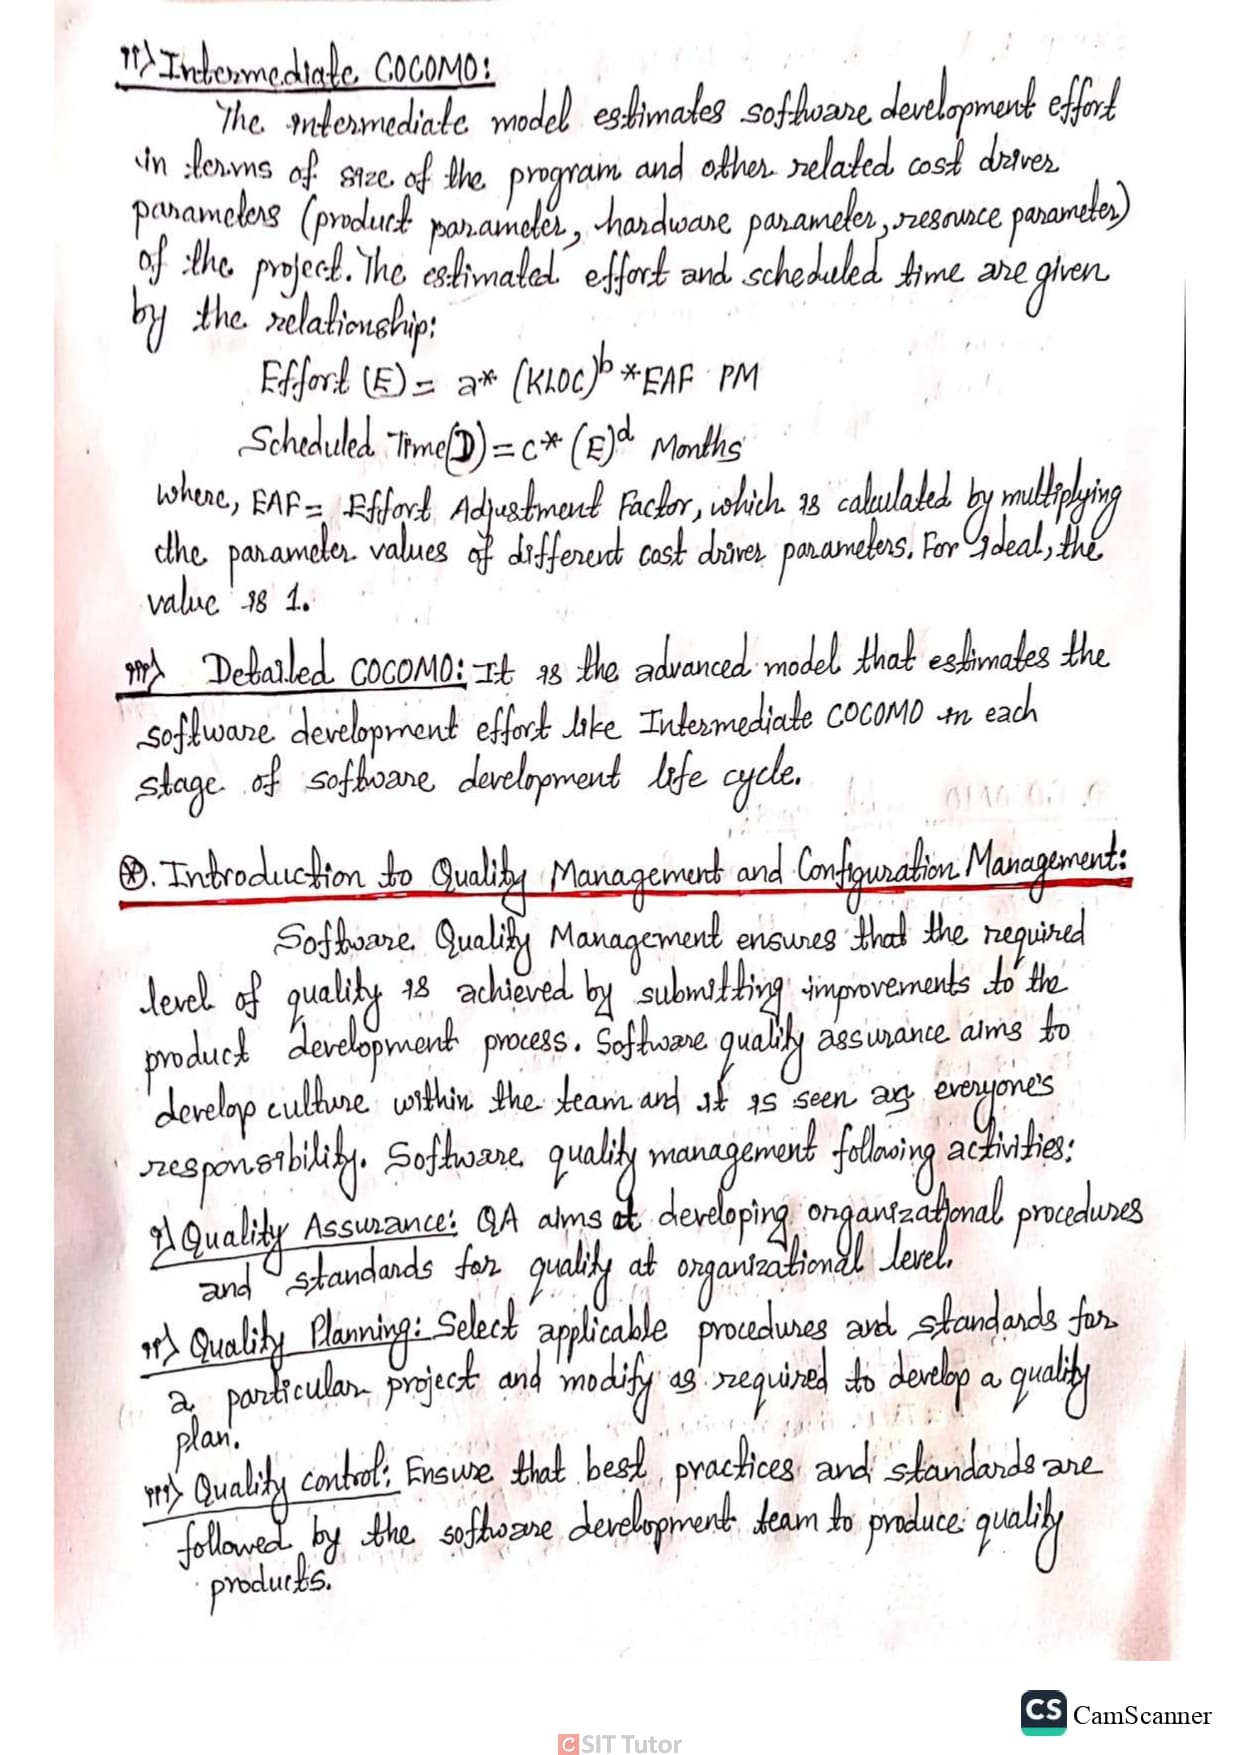 ii) Intermediate COCOMO:
The intermediate model estimates software development effort
in terms of size of the program and other related cost driver
parameters (product parameter, hardware parameter, resource parameter)
of the project. The estimated effort and scheduled time are given
by the relationship:
Effort (E) = a* (KLOC)^b *EAF PM
Scheduled Time(D) = c* (E)^d Months
where, EAF = Effort Adjustment Factor, which is calculated by multiplying
the parameter values of different cost driver parameters. For ideal, the
value is 1.
iii) Detailed COCOMO: It is the advanced model that estimates the
software development effort like Intermediate COCOMO in each
stage of software development life cycle.
⊛. Introduction to Quality Management and Configuration Management:
Software Quality Management ensures that the required
level of quality is achieved by submitting improvements to the
product development process. Software quality assurance aims to
develop culture within the team and it is seen as everyone's
responsibility. Software quality management following activities:
i) Quality Assurance: QA aims at developing organizational procedures
and standards for quality at organizational level.
ii) Quality Planning: Select applicable procedures and standards for
a particular project and modify as required to develop a quality
plan.
iii) Quality control: Ensure that best practices and standards are
followed by the software development team to produce quality
products.
CS CamScanner
CSIT Tutor